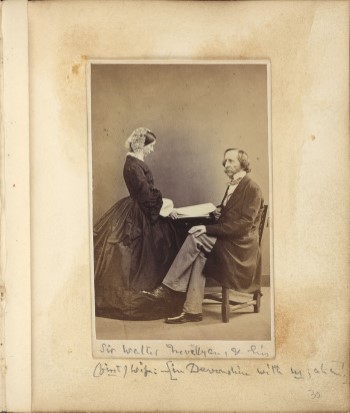 Sir Walter Trevelyan, & his
(first) wife: in Devonshire with my
30